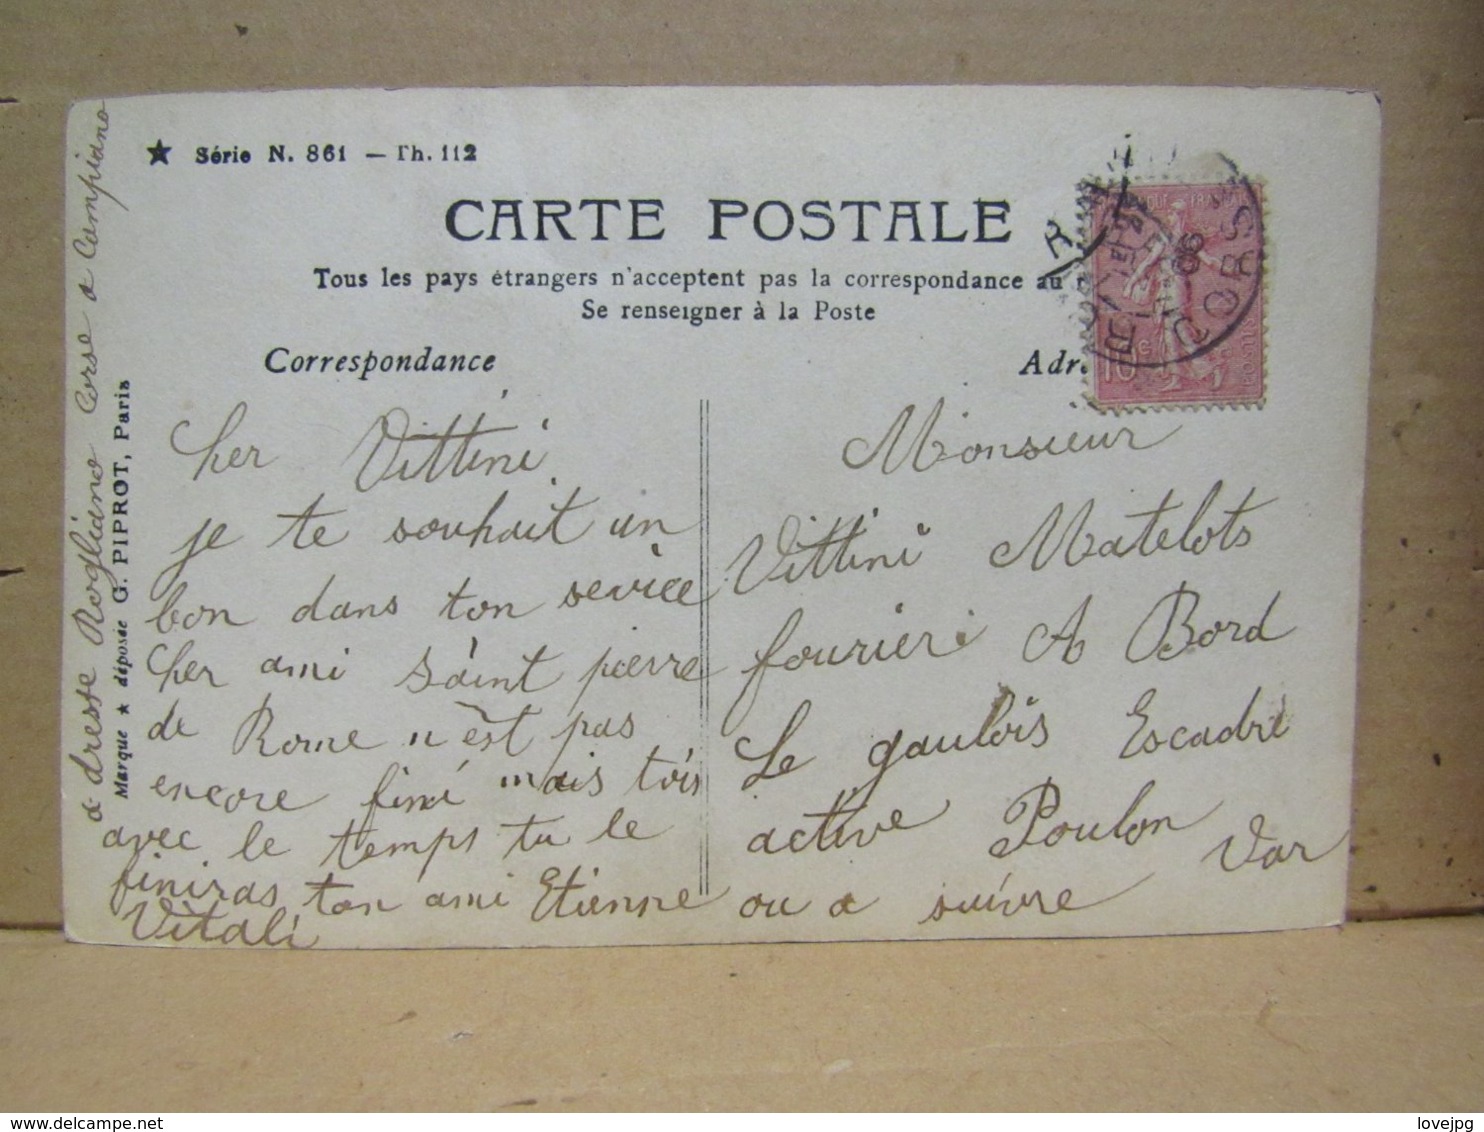 ★ Série N. 861 — Ph. 112
CARTE POSTALE
Tous les pays étrangers n'acceptent pas la correspondance au
Se renseigner à la Poste
Correspondance
Adr
10
CORSE
06
Cher Vittini
je te souhait un
bon dans ton sevice
Cher ami Saint pierre
de Rome n'est pas
encore fini mais tois
avec le temps tu le
finiras ton ami Etienne
Vitali
Monsieur
Vittini Matelots
fourier A Bord
Le gaulois Escadre
active Toulon
Var
ou a suivre
a dresse Rogliano Corse a Campiano
Marque ★ déposée G. PIPROT, Paris
www.delcampe.net
lovejpg